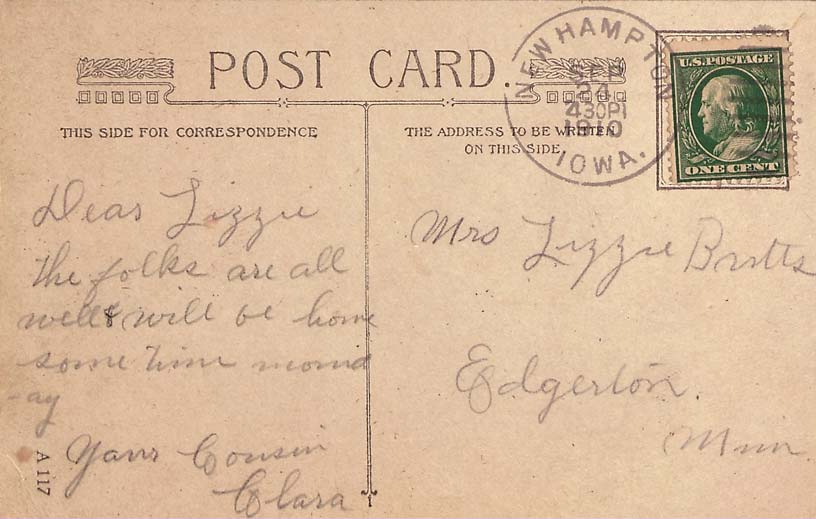 POST CARD.
THIS SIDE FOR CORRESPONDENCE
THE ADDRESS TO BE WRITTEN
ON THIS SIDE.
NEW HAMPTON
SEP
24
430PM
1910
IOWA.
U.S. POSTAGE
ONE CENT
Dear Lizzie
the folks are all
well & will be home
some time mond
-ay
Yours Cousin
Clara
A 117
Mrs Lizzie
Edgerton.
Minn